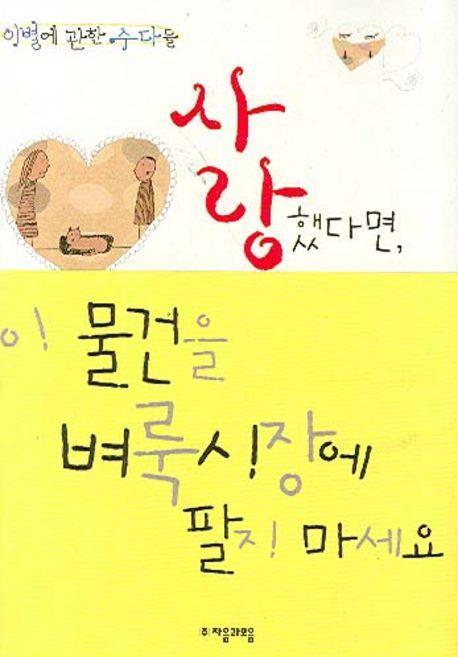 이별에 관한 수다들
사
랑했다면,
이 물건을
벼룩시장에
팔지 마세요
(주)자음과모음